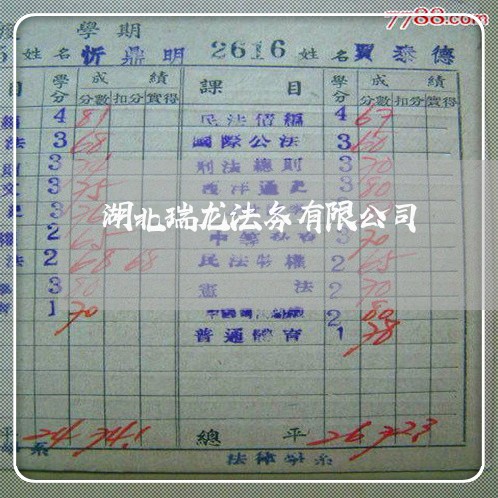 7788.com
學期
姓名 忻鼎明 2616 姓名 賈泰德
目 學分 成績 課目 學分 成績
分數 扣分 實得 分數 扣分 實得
4 81 民法債編 4 67
法 3 68 國際公法 3 60
3 刑法總則 3 70
3 75 西洋通史 3 80
3
湖北瑞龙法务有限公司
2 65 3 70
法 2 68 68 民法物權 2 65
3 80 憲法 2 70
1 70 2 80
普通體育 1 78
平 24 74.1 總平 26 72.3
系 法律學系